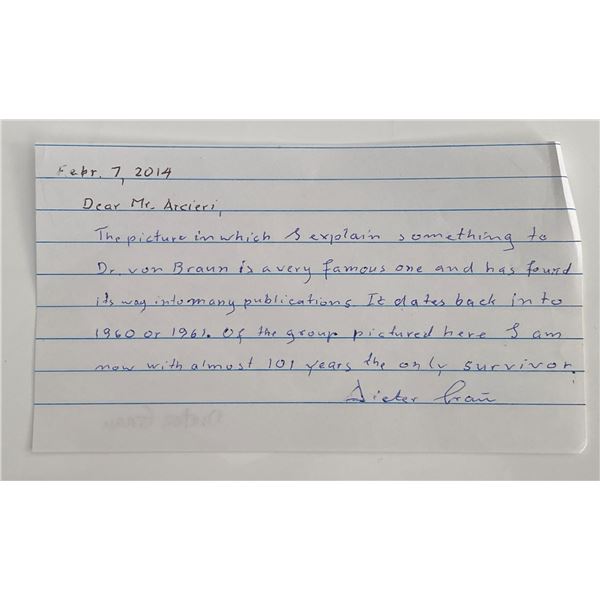 Febr. 7, 2014
Dear Mr. Arcieri,
The picture in which I explain something to
Dr. von Braun is a very famous one and has found
its way into many publications. It dates back in to
1960 or 1961. Of the group pictured here I am
now with almost 101 years the only survivor.
Dieter Grau